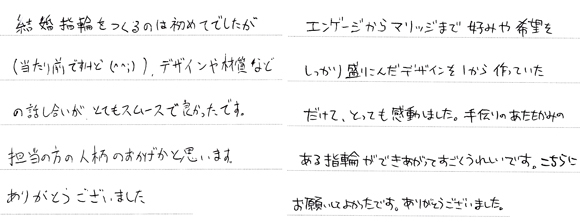 結婚指輪をつくるのは初めてでしたが
(当たり前ですけど(^^;))、デザインや材質など
の話し合いが、とてもスムースで良かったです。
担当の方の人柄のおかげかと思います。
ありがとうございました
エンゲージからマリッジまで 好みや希望を
しっかり盛りこんだデザインを1から作っていた
だけて、とっても感動しました。手伝りのあたたかみの
ある指輪ができあがってすごくうれしいです。こちらに
お願いしてよかったです。ありがとうございました。